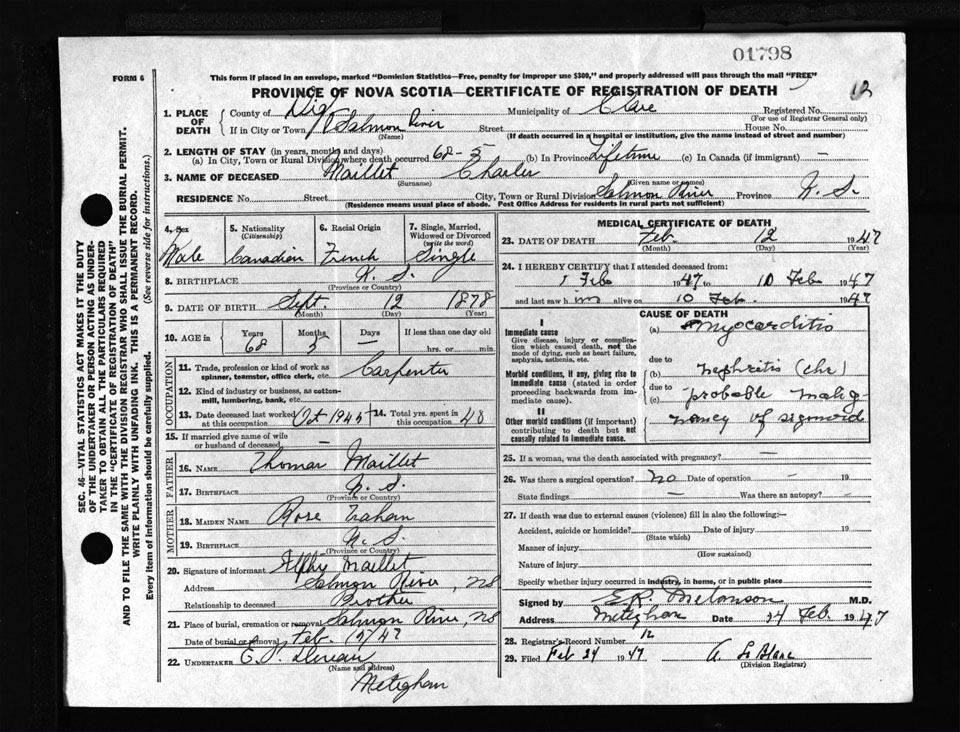 01798
FORM 6
This form if placed in an envelope, marked "Dominion Statistics—Free, penalty for improper use $300," and properly addressed will pass through the mail "FREE"
PROVINCE OF NOVA SCOTIA—CERTIFICATE OF REGISTRATION OF DEATH
12
SEC. 46—VITAL STATISTICS ACT MAKES IT THE DUTY
OF THE UNDERTAKER OR PERSON ACTING AS UNDER-
TAKER TO OBTAIN ALL THE PARTICULARS REQUIRED
IN THE "CERTIFICATE OF REGISTRATION OF DEATH"
AND TO FILE THE SAME WITH THE DIVISION REGISTRAR WHO SHALL ISSUE THE BURIAL PERMIT.
WRITE PLAINLY WITH UNFADING INK. THIS IS A PERMANENT RECORD.
Every item of information should be carefully supplied. (See reverse side for instructions.)
1. PLACE OF DEATH
County of Dig Municipality of Clare Registered No.
(For use of Registrar General only)
If in City or Town Salmon River Street House No.
(Name) (If death occurred in a hospital or institution, give the name instead of street and number)
2. LENGTH OF STAY (in years, months and days)
(a) In City, Town or Rural Division where death occurred 68-5 (b) In Province Lifetime (c) In Canada (if immigrant) —
3. NAME OF DECEASED Maillet Charles
(Surname) (Given name or names)
RESIDENCE No. Street City, Town or Rural Division Salmon River Province N.S.
(Residence means usual place of abode. Post Office Address for residents in rural parts not sufficient)
4. Sex 5. Nationality (Citizenship) 6. Racial Origin 7. Single, Married, Widowed or Divorced (write the word)
Male Canadian French Single
8. BIRTHPLACE N.S.
(Province or Country)
9. DATE OF BIRTH Sept. 12 1878
(Month) (Day) (Year)
10. AGE in Years Months Days If less than one day old
68 5 — hrs. or min.
OCCUPATION
11. Trade, profession or kind of work as spinner, teamster, office clerk, etc. Carpenter
12. Kind of industry or business, as cotton-mill, lumbering, bank, etc.
13. Date deceased last worked at this occupation Oct 1945 14. Total yrs. spent in this occupation 48
15. If married give name of wife or husband of deceased —
FATHER
16. NAME Thomas Maillet
17. BIRTHPLACE N.S.
(Province or Country)
MOTHER
18. MAIDEN NAME Rose
19. BIRTHPLACE N.S.
(Province or Country)
20. Signature of informant Maillet
Address Salmon River, NS
Relationship to deceased Brother
21. Place of burial, cremation or removal Salmon River, NS
Date of burial or removal Feb. 15/47
22. UNDERTAKER
(Name and address)
Meteghan
MEDICAL CERTIFICATE OF DEATH
23. DATE OF DEATH Feb. 12 1947
(Month) (Day) (Year)
24. I HEREBY CERTIFY that I attended deceased from:
1 Feb 1947 to 10 Feb 1947
and last saw him alive on 10 Feb. 1947
CAUSE OF DEATH
I
Immediate cause
Give disease, injury or complication which caused death, not the mode of dying, such as heart failure, asphyxia, asthenia, etc.
(a) Myocarditis
due to
Morbid conditions, if any, giving rise to immediate cause (stated in order proceeding backwards from immediate cause).
(b) nephritis (chr)
due to
(c) probable malig-
nancy of sigmoid
II
Other morbid conditions (if important) contributing to death but not causally related to immediate cause.
25. If a woman, was the death associated with pregnancy? —
26. Was there a surgical operation? no Date of operation — 19
State findings — Was there an autopsy? -
27. If death was due to external causes (violence) fill in also the following:—
Accident, suicide or homicide? Date of injury 19
(State which)
Manner of injury
(How sustained)
Nature of injury
Specify whether injury occurred in industry, in home, or in public place
Signed by E.R. Melanson M.D.
Address Meteghan Date 24 Feb. 1947
28. Registrar's Record Number 12
29. Filed Feb 24 1947 A. Le Blanc
(Division Registrar)